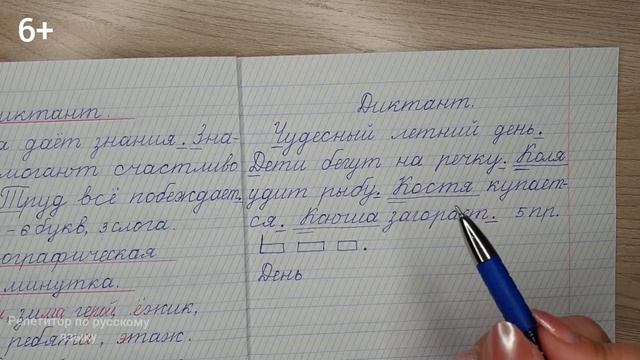 6+
диктант.
а даёт знания. Зна-
могают счастливо
Труд всё побеждает.
- 6 букв, 3 слога.
ографическая
минутка.
зима, герой, ёжик,
ребята, этаж.
Репетитор по русскому
языку
Диктант.
Чудесный летний день.
Дети бегут на речку. Коля
удит рыбу. Костя купает-
ся. Каюша загорает. 5 пр.
День